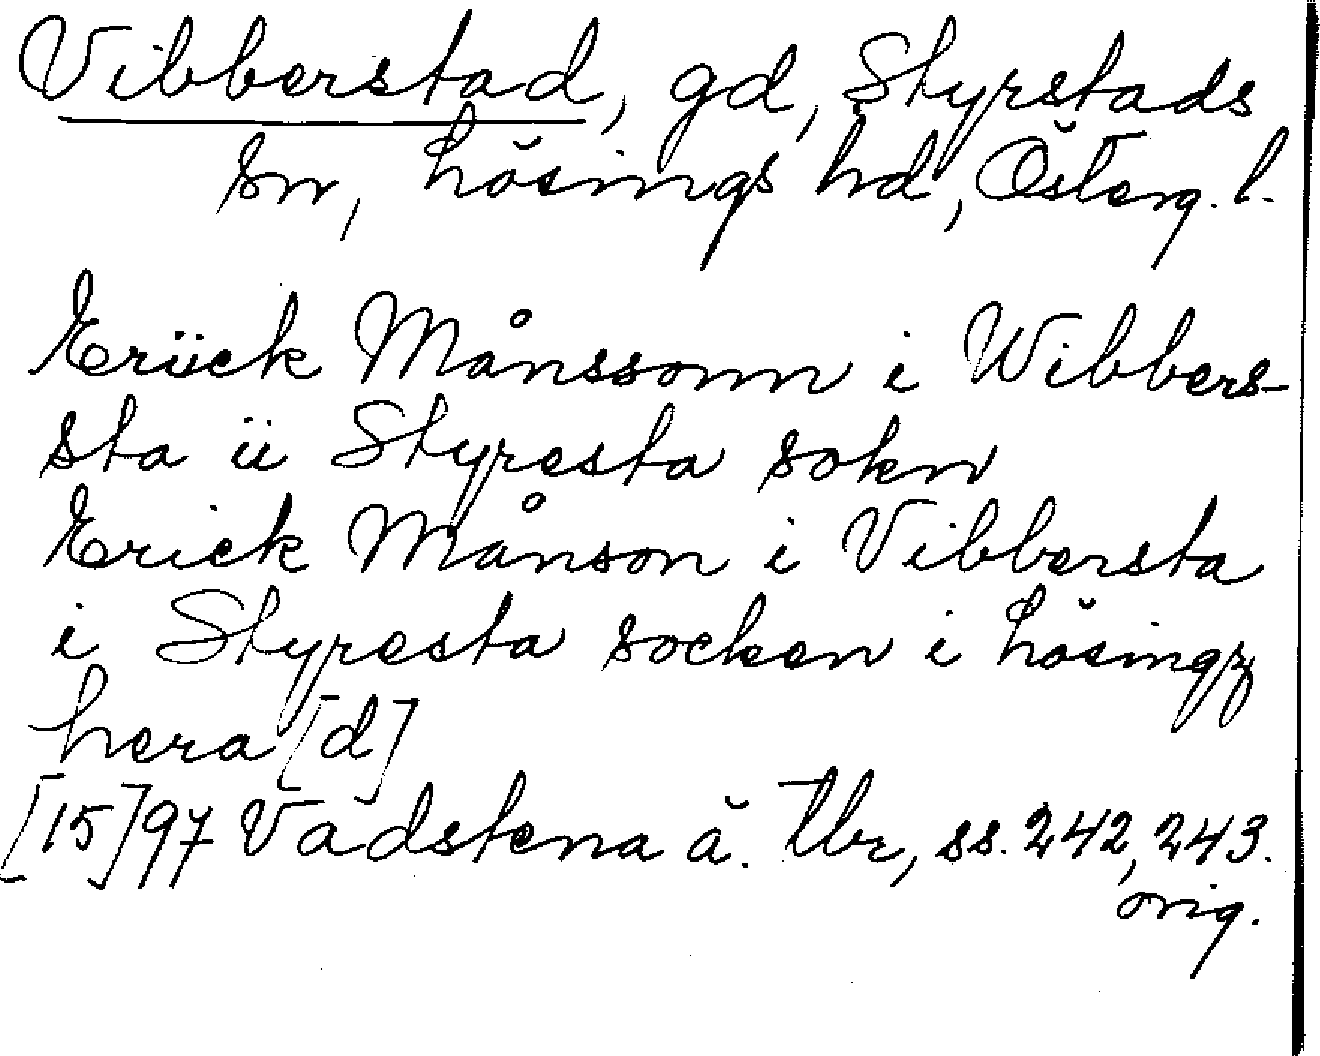 Vibberstad, gd, Styrstads
sn, Lösings hd, Österg. l.
Eriick Månssonn i Wibbers-
sta ii Styresta sokn
Erick Månson i Vibbersta
i Styresta socken i Lösingz
hera[d]
[15]97 Vadstena ä. Tbr, ss. 242, 243.
orig.